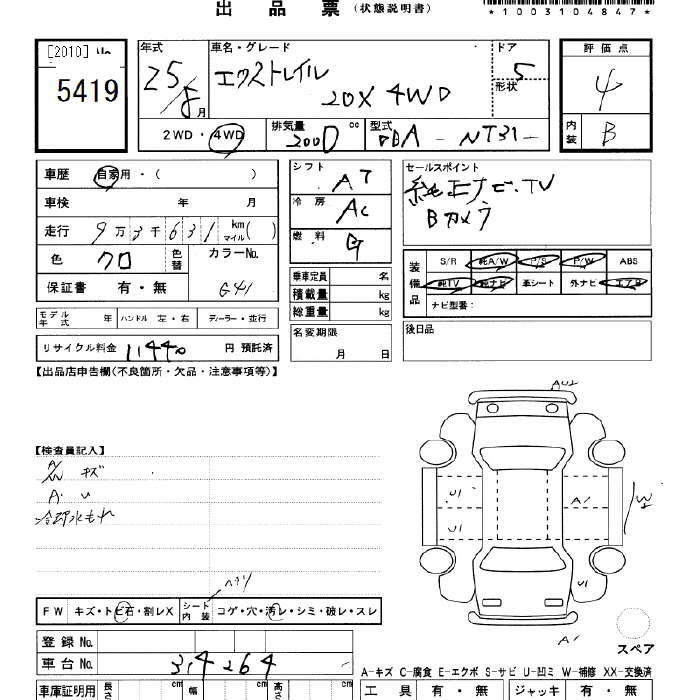 出品票(状態説明書)
*1003104847*
[2010]
5419
年式
25/8月
車名・グレード
エクストレイル
20X 4WD
ドア
5
形状
評価点
4
内装
B
2WD・4WD
排気量
2000 cc
型式
DBA - NT31 -
車歴 自家用・( )
車検 年 月
走行 9万3千631 km マイル( )
色 クロ 色替 カラーNo. G41
保証書 有・無
シフト AT
冷房 AC
燃料 G
セールスポイント
純正ナビ.TV
Bカメラ
乗車定員 名
積載量 kg
総重量 kg
装備品
S/R 純A/W P/S P/W ABS
純TV 純ナビ 革シート 外ナビ エアB
ナビ型番:
モデル年式 年 ハンドル 左・右 ディーラー・並行
名変期限
月 日
後日品
リサイクル料金 11440 円 預託済
【出品店申告欄(不良箇所・欠品・注意事項等)】
【検査員記入】
A/W キズ
A・U
冷却水もれ
AU2
U1
U1
A1
W2
U1
A1
ヘタリ
FW キズ・トビ石・割レX シート内装 コゲ・穴・汚レ・シミ・破レ・スレ
スペア
登録No.
車台No. 314264
A-キズ C-腐食 E-エクボ S-サビ U-凹ミ W-補修 XX-交換済
車庫証明用 長さ cm 幅 cm 高さ cm
工具 有・無 ジャッキ 有・無